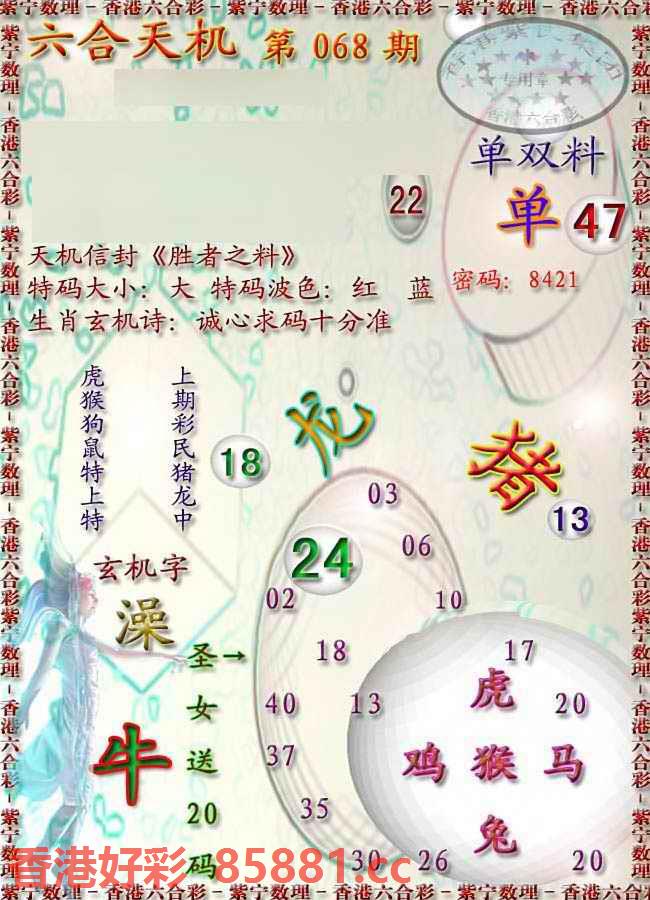 紫宁数理－香港六合彩－紫宁数理－香港六合彩－紫宁数理－香港六合彩
六合天机 第 068 期
专用章
香港六合彩
单双料
单 47
22
天机信封《胜者之料》
特码大小：大 特码波色：红 蓝
密码：8421
生肖玄机诗：诚心求码十分准
虎猴狗鼠特上特
上期彩民猪龙中
18
龙
猪
13
24
03
06
02
10
玄机字
澡
牛
圣→
女
送
20
码
18
40 13
37
35
30 26
17
虎
20
鸡 猴 马
兔
20
香港好彩 85881.cc
紫宁数理－香港六合彩－紫宁数理－香港六合彩－紫宁数理－香港六合彩